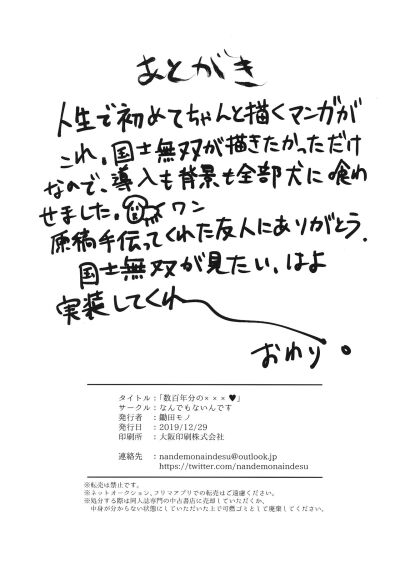 あとがき
人生で初めてちゃんと描くマンガが
これ。国士無双が描きたかっただけ
なので、導入も背景も全部犬に喰わ
せました。ワン
原稿手伝ってくれた友人にありがとう.
国士無双が見たい。はよ
実装してくれー
おわり。
タイトル：「数百年分の×××♥」
サークル：なんでもないんです
発行者：鋤田モノ
発行日：2019/12/29
印刷所：大阪印刷株式会社
連絡先：nandemonaindesu@outlook.jp
https://twitter.com/nandemonaindesu
※転売は禁止です。
※ネットオークション、フリマアプリでの転売はご遠慮ください。
※処分する際は同人誌専門の中古書店に売却していただくか、
中身が分からない状態にしていただいた上で可燃ゴミとして廃棄してください。